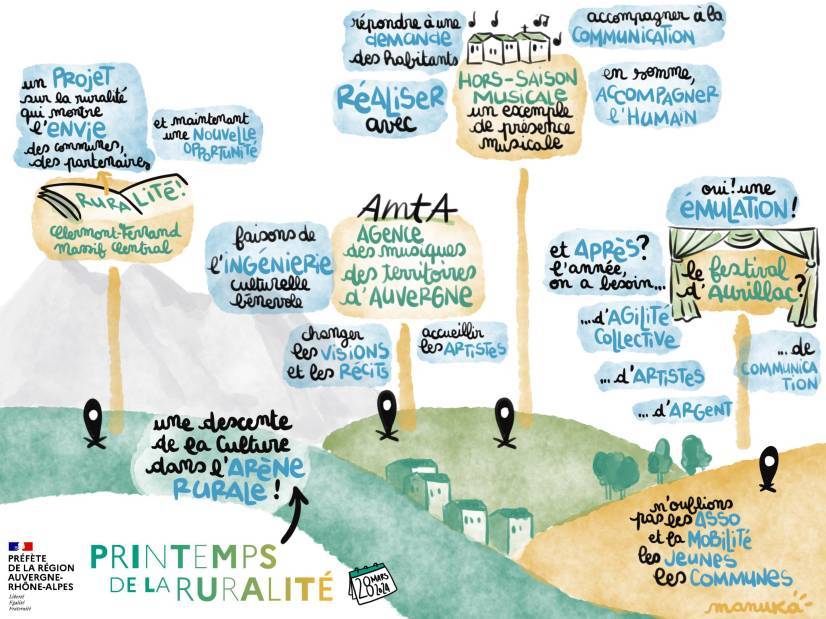 un PROJET
sur la ruralité
qui montre
l'ENVIE
des communes,
des partenaires
et maintenant
une NOUVELLE
OPPORTUNITÉ
RURALITÉ!
Clermont-Ferrand
Massif Central
répondre à une
demande
des habitants
RÉALISER
avec
HORS-SAISON
MUSICALE
un exemple
de présence
musicale
accompagner à la
COMMUNICATION
en somme,
ACCOMPAGNER
l'HUMAIN
faisons de
l'INGÉNIERIE
culturelle
bénévole
AmtA
AGENCE
des musiques
des territoires
d'AUVERGNE
changer
les VISIONS
et les RÉCITS
accueillir
les ARTISTES
oui! une
ÉMULATION!
le festival
d'Aurillac?
et APRÈS?
l'année,
on a besoin...
...d'AGILITÉ
COLLECTIVE
...d'ARTISTES
...d'ARGENT
...de
COMMUNICA
TION
une descente
de la Culture
dans l'ARÈNE
RURALE!
n'oublions
pas les ASSO
et la MOBILITÉ
les JEUNES
les COMMUNES
manuka
PRÉFÈTE
DE LA RÉGION
AUVERGNE-
RHÔNE-ALPES
Liberté
Égalité
Fraternité
PRINTEMPS
DE LA RURALITÉ
28 MARS
2024